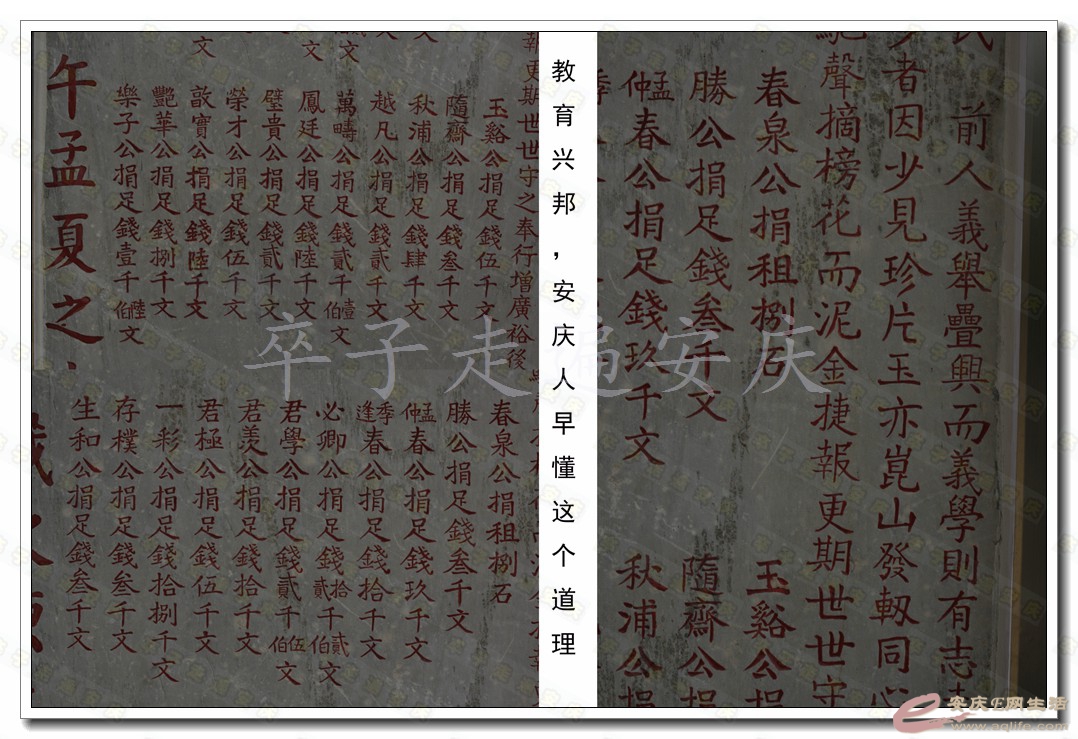 前人義舉疊興而義學則有志
者因少見珍片玉亦崑山發軔同心
聲摘榜花而泥金捷報更期世世守
春泉公捐租捌石
玉谿公捐
勝公捐足錢叁千文
隨齋公捐
孟仲春公捐足錢玖千文
秋浦公捐
教育兴邦，安庆人早懂这个道理
報更期世世守之奉行增廣裕後
玉谿公捐足錢伍千文
隨齋公捐足錢叁千文
秋浦公捐足錢肆千文
越凡公捐足錢貳千文
萬疇公捐足錢貳千壹伯文
鳳廷公捐足錢陸千文
璧貴公捐足錢貳千文
榮才公捐足錢伍千文
敔寶公捐足錢陸千文
艷華公捐足錢捌千文
樂子公捐足錢壹千陸伯文
春泉公捐租捌石
勝公捐足錢叁千文
孟仲春公捐足錢玖千文
季逢春公捐足錢拾千文
必卿公捐足錢拾貳千貳伯文
君學公捐足錢貳千伍伯文
君羙公捐足錢拾千文
君極公捐足錢伍千文
一彩公捐足錢拾捌千文
存樸公捐足錢叁千文
生和公捐足錢叁千文
午孟夏之
卒子走遍安庆
安庆E网生活
www.aqlife.com